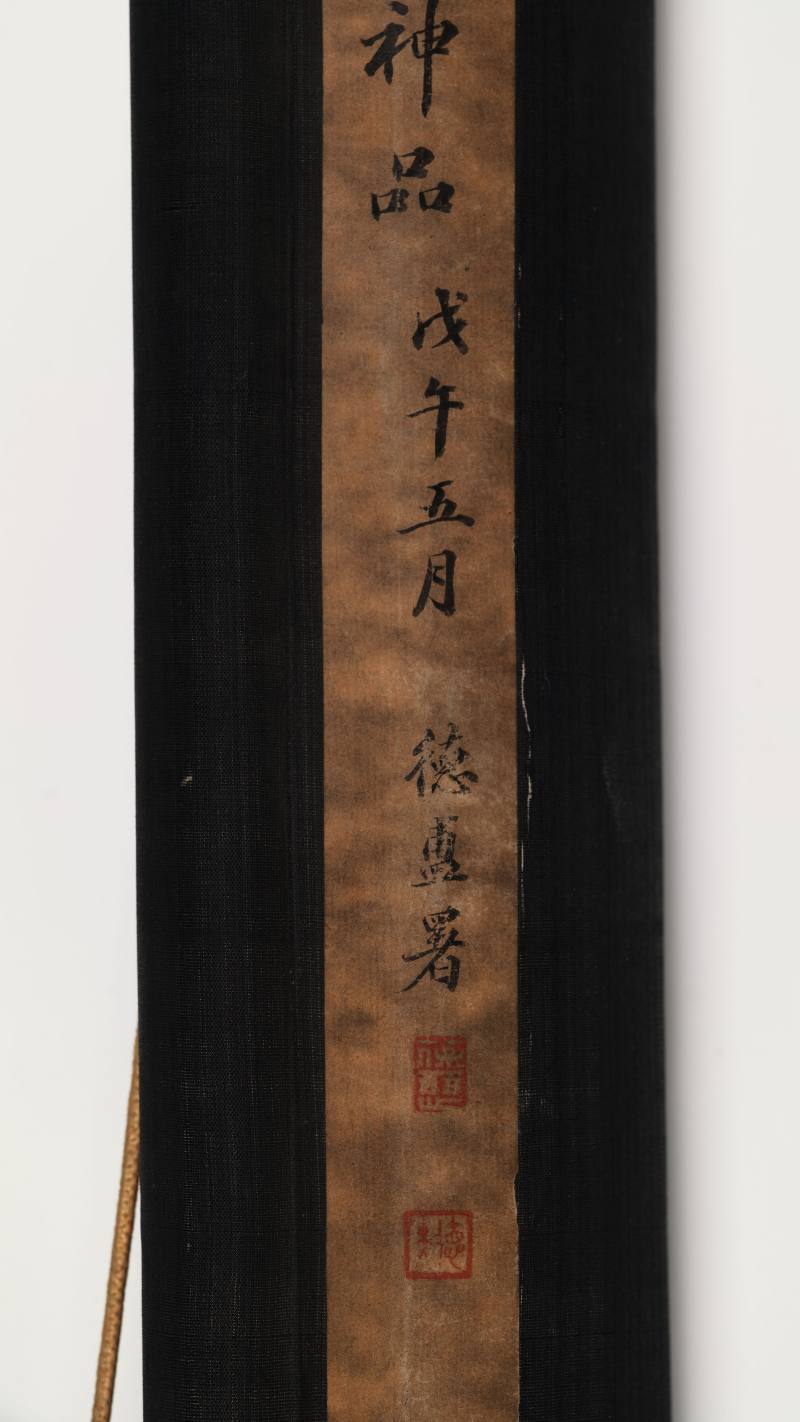 神品
戊午五月 德畫署